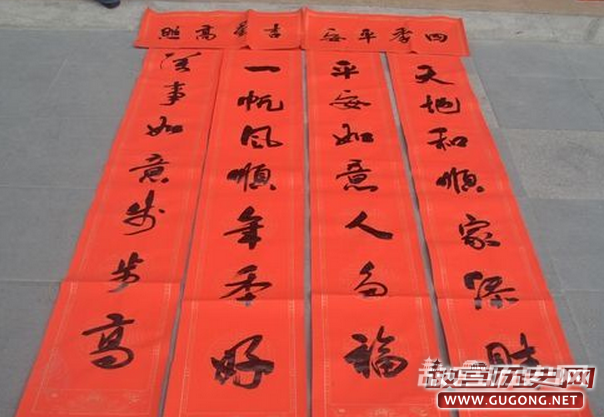 四季平安
吉星高照
天地和順家添財
平安如意人多福
一帆风順年年好
萬事如意步步高
故宫历史网
WWW.GUGONG.NET